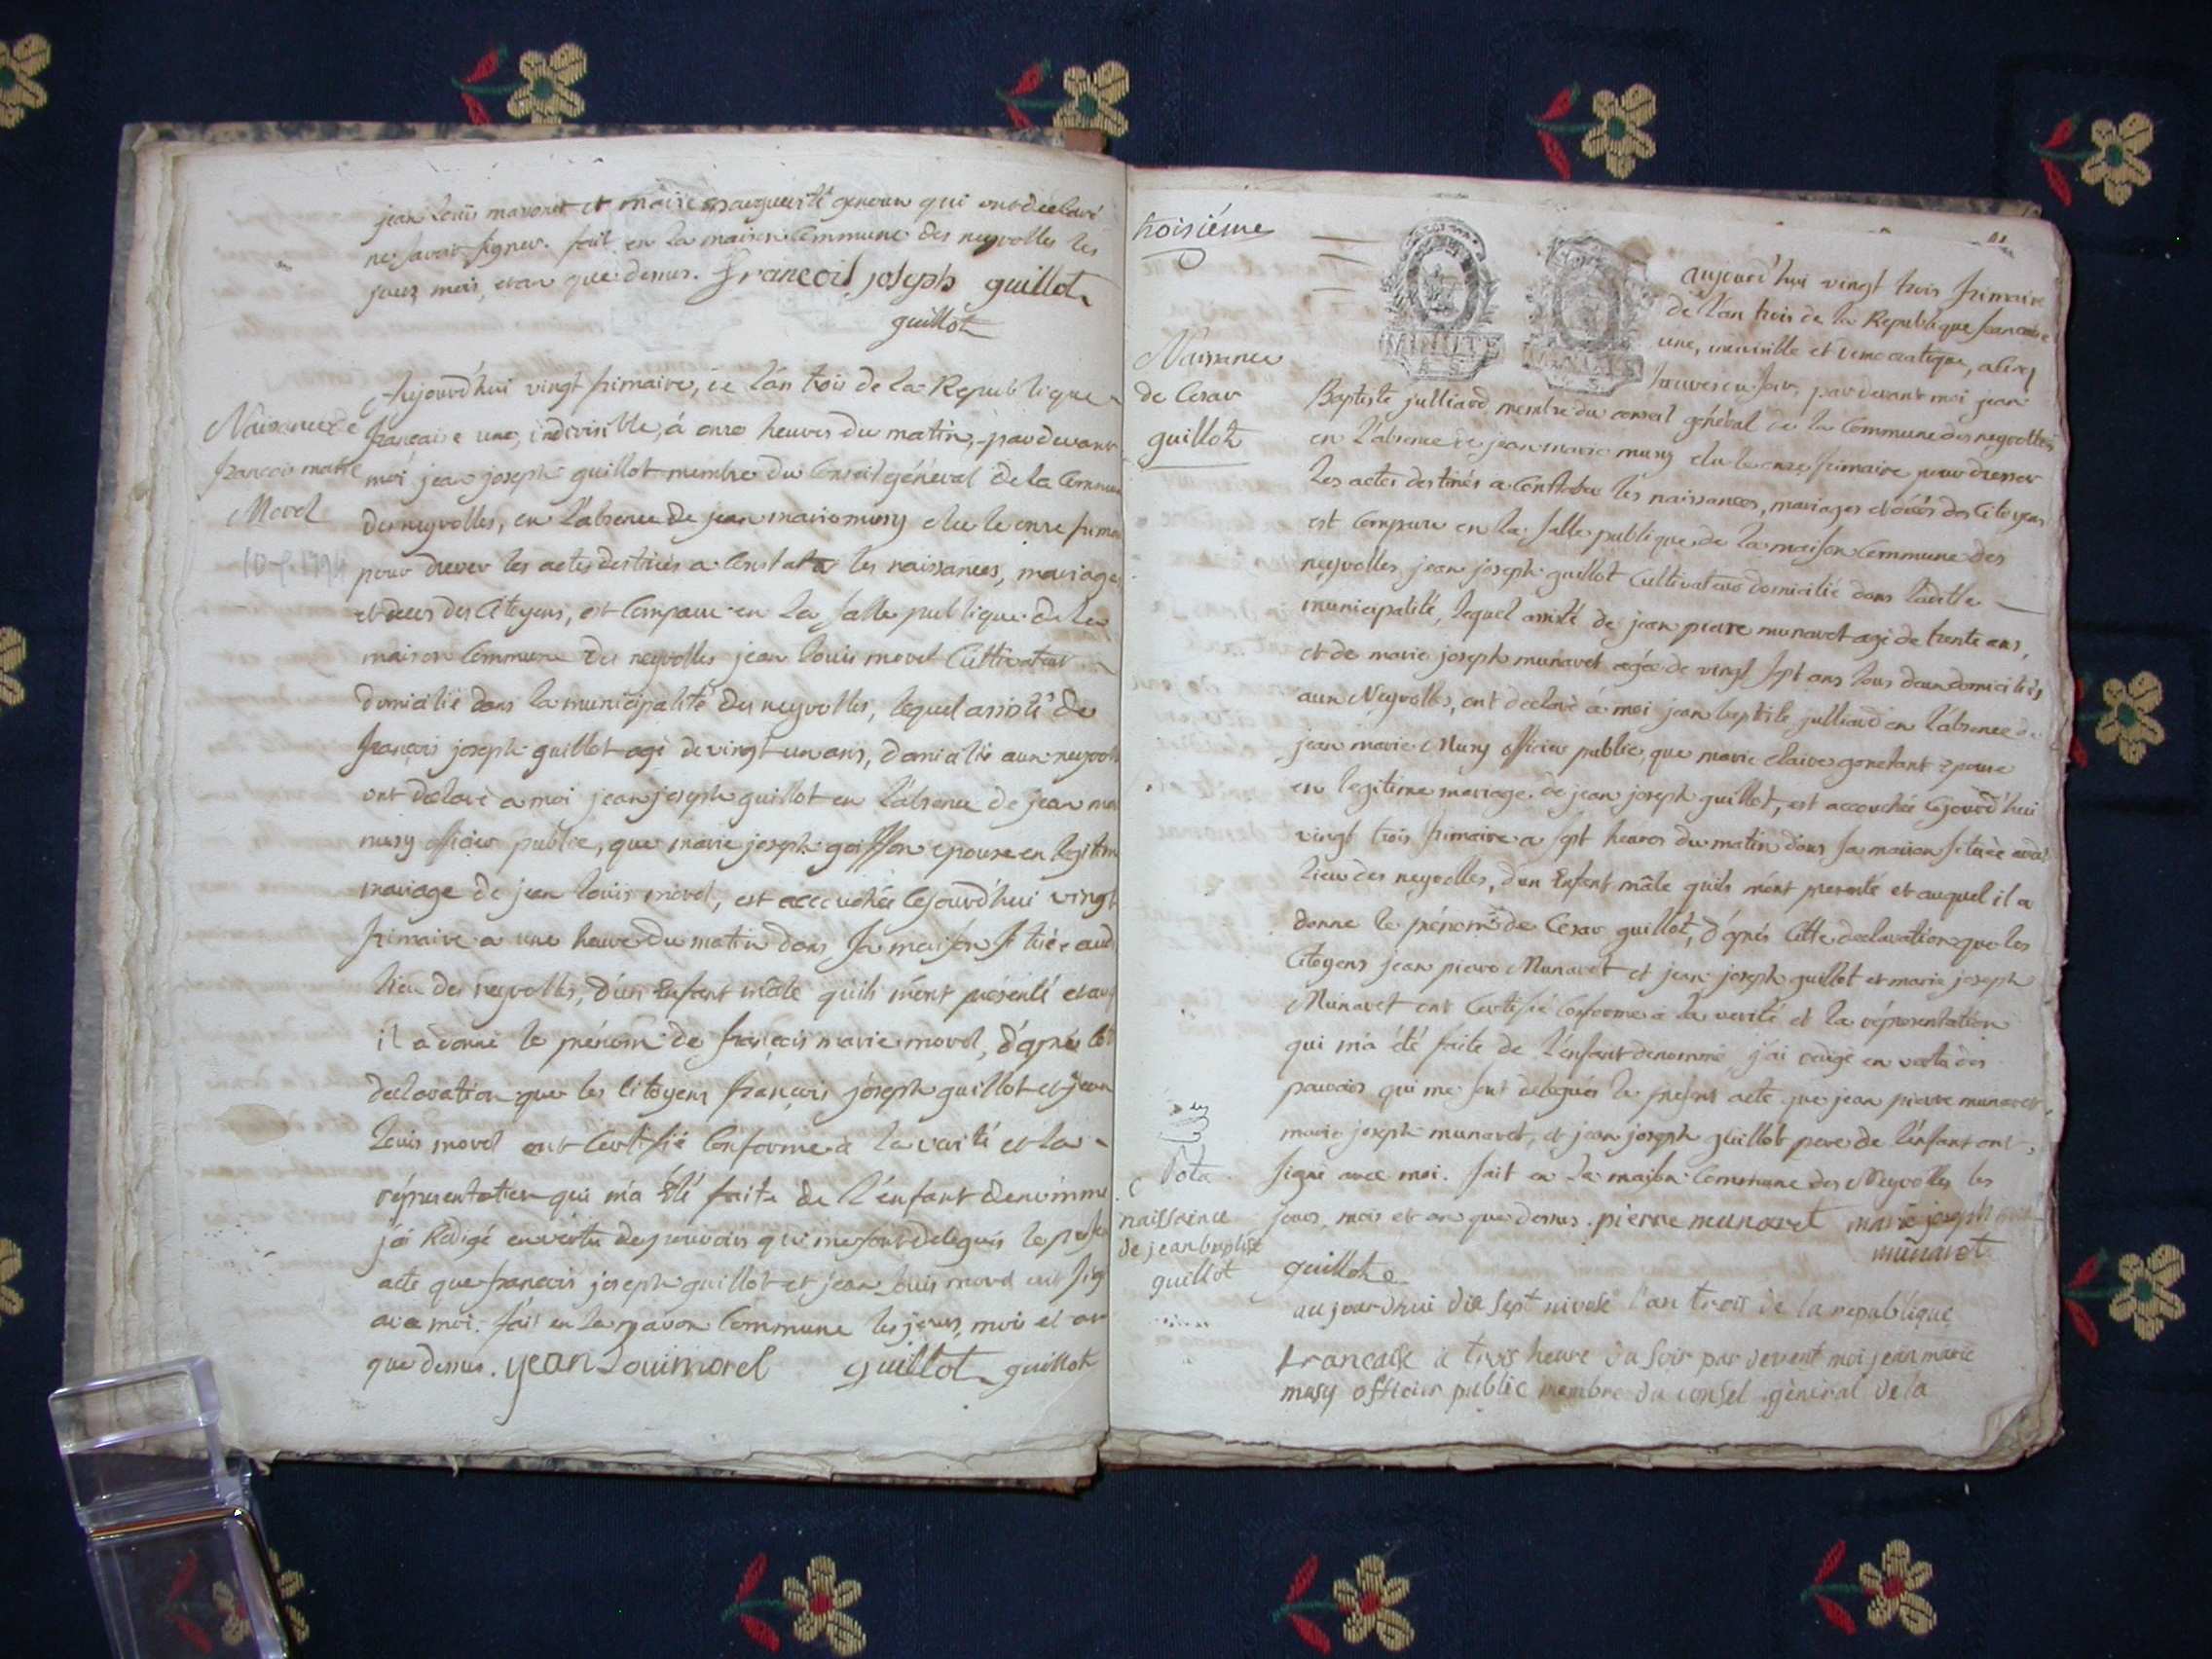 jean louis mavoret et marie marguerite qui ont déclaré
ne savoir signer. fait en la maison Commune des neyrolles les
jour, mois, et an que dessus. francois joseph guillot
guillot
Naissance de
françois marie
Morel
Aujourd'hui vingt frimaire, de l'an trois de la Republique
française une, indivisible, à onze heures du matin, par devant
moi jean joseph guillot membre du Conseil général de la Commune
des neyrolles, en l'absence de jean marie musy elu le onze frima
pour dresser les actes destinés a Constater les naissances, mariages
et deces des Citoyens, est Comparu en la salle publique de la
maison Commune des neyrolles jean louis morel Cultivateur
domicilié dans la municipalité des neyrolles, lequel assisté de
françois joseph guillot agé de vingt un ans, domicilié aux neyroll
ont déclaré a moi jean joseph guillot en l'absence de jean ma
musy officier public, que marie joseph goiffon epouse en legitim
mariage de jean louis morel, est accouchée Cejourd'hui vingt
frimaire a une heure du matin dans sa maison située aud
lieu des neyrolles, d'un Enfant mâle qu'ils m'ont présenté et auq
il a donné le prénom de françois marie morel, d'après cet
declaration que les Citoyens françois joseph guillot et jean
louis morel ont Certifié Conforme a la verité et la
répresentation qui m'a été faite de l'enfant denommé
j'ai Redigé en vertu des pouvoirs qui me sont delegués le prese
acte que francois joseph guillot et jean louis morel ont sign
avec moi. fait en la maison Commune les jour, mois et an
que dessus. jean Louimorel guillot guillot
troisiéme
Naissance
de Cesar
guillot
aujourd'hui vingt trois frimaire
de l'an trois de la Republique francaise
une, indivisible et democratique, a cinq
heures du soir, par devant moi jean
Baptiste julliard membre du conseil général de la Commune des neyrolles
en l'absence de jean marie musy elu le onze frimaire pour dresser
les actes destinés a Constater les naissances, mariages et décès des Citoyens
est Comparu en la salle publique de la maison Commune des
neyrolles jean joseph guillot Cultivateur domicilié dans ladite
municipalité, lequel assisté de jean pierre munaret agé de trente ans,
et de marie joseph munaret agée de vingt sept ans tous deux domiciliés
aux Neyrolles, ont declaré à moi jean baptiste julliard en l'absence de
jean marie Musy officier public, que marie claire gonetant epouse
en legitime mariage de jean joseph guillot, est accouchée Cejourd'hui
vingt trois frimaire a sept heures du matin dans sa maison située audit
lieu des neyrolles, d'un Enfant mâle qu'ils m'ont presenté et auquel il a
donné le prénom de Cesar guillot, d'après Cette declaration que les
Citoyens jean pierre Munaret et jean joseph guillot et marie joseph
Munaret ont Certifié Conforme a la verité et la répresentation
qui m'a été faite de l'enfant denommé j'ai redigé en vertu des
pouvoirs qui me sont delegués le present acte que jean pierre munaret,
marie joseph munaret, et jean joseph guillot pere de l'enfant ont
signé avec moi. fait en la maison Commune des Neyrolles les
jour, mois et an que dessus. pierre munaret marie joseph
munaret
guillot
Nota
naissaince
de jean baptiste
guillot
aujourdhui dix sept nivose l'an trois de la republique
francaise a trois heure du soir par devent moi jean marie
musy officier public membre du consel général de la